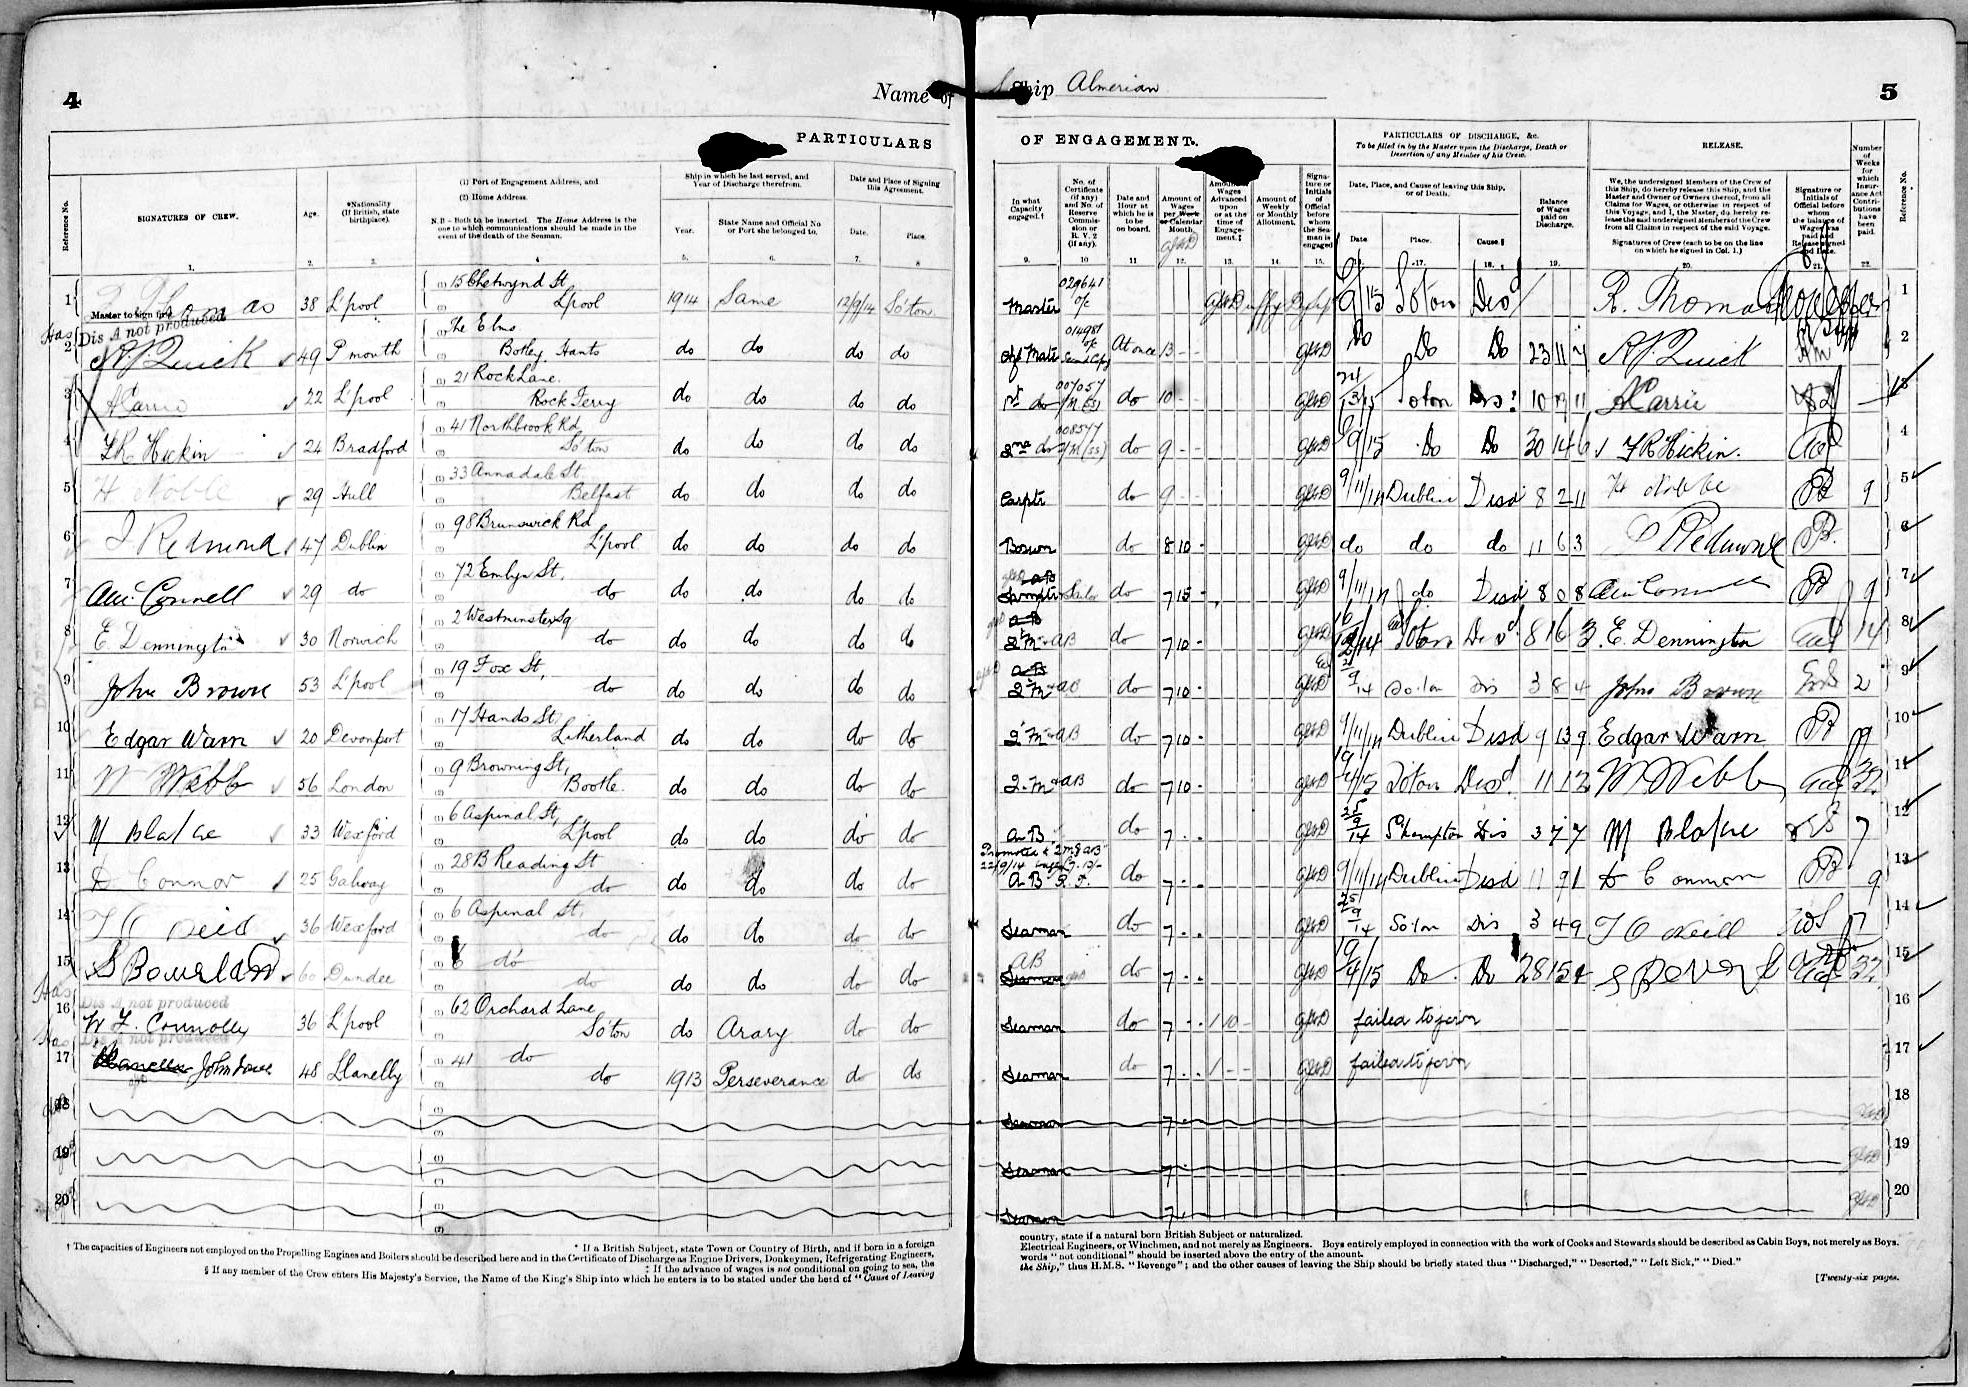 4
Name of
Ship Almerian
5
PARTICULARS
OF ENGAGEMENT.
PARTICULARS OF DISCHARGE, &c.
To be filled in by the Master upon the Discharge, Death or
Desertion of any Member of his Crew.
RELEASE.
Reference No.
SIGNATURES OF CREW.
Age.
*Nationality
(If British, state
birthplace).
(1) Port of Engagement Address, and
(2) Home Address.
N.B - Both to be inserted. The Home Address is the
one to which communications should be made in the
event of the death of the Seaman.
Ship in which he last served, and
Year of Discharge therefrom.
Year.
State Name and Official No
or Port she belonged to.
Date and Place of Signing
this Agreement.
Date.
Place.
In what
Capacity
engaged.†
No. of
Certificate
(if any)
and No. of
Reserve
Commis-
sion or
R. V. 2
(if any).
Date and
Hour at
which he is
to be
on board.
Amount of
Wages
per Week
or Calendar
Month.
Amount of
Wages
Advanced
upon
or at the
time of
Engage-
ment.‡
Amount of
Weekly
or Monthly
Allotment.
Signa-
ture or
Initials
of
Official
before
whom
the Sea-
man is
engaged
Date, Place, and Cause of leaving this Ship,
or of Death.
Date
Place.
Cause.§
Balance
of Wages
paid on
Discharge.
We, the undersigned Members of the Crew of
this Ship, do hereby release this Ship, and the
Master and Owner or Owners thereof, from all
Claims for Wages, or otherwise in respect of
this Voyage, and I, the Master, do hereby re-
lease the said undersigned Members of the Crew
from all Claims in respect of the said Voyage.
Signatures of Crew (each to be on the line
on which he signed in Col. 1.)
Signature or
Initials of
Official before
whom
the balance of
Wages was
paid and
Release signed
and Date.
Number
of
Weeks
for
which
Insur-
ance Act
Contri-
butions
have
been
paid.
Reference No.
1 Master to sign first Thomas 38 L'pool 15 Chetwynd St L'pool 1914 Same 12/9/14 So'ton
Master 029641 o/c 6/9/15 Soton Disd R. Thomas 1
Dis A not produced
2 R.P. Quick 49 P'mouth The Elms Botley, Hants do do do do
Chf Mate 014981 o/c Second Copy At once 13 - - Do Do Do 23 11 7 R.P. Quick 2
3 A Carrie 22 L'pool 21 Rock Lane. Rock Ferry do do do do
1st do 007057 do 10 - - Soton Dis? A Carrie 3
4 F.R. Hickin 24 Bradford 41 Northbrook Rd So'ton do do do do
2nd do 008577 do 9 - - 6/9/15 Do Do 30 14 6 F R Hickin. 4
5 H Noble 29 Hull 33 Annadale St Belfast do do do do
Carptr do 9 - - 9/11/14 Dublin Disd 8 2 11 H Noble 9 5
6 Redmond 47 Dublin 98 Brunswick Rd L'pool do do do do
Bosun do 8 10 - do do do 11 6 3 Redmond 6
7 Connell 29 do 72 Emlyn St, do do do do do
Sailor do 7 15 - 9/11/14 do Disd 8 0 8 9 7
8 E. Dennington 30 Norwich 2 Westminster Sq do do do do do
2 M & AB do 7 10 - Soton Disd 8 16 3 E. Dennington 14 8
9 John Brown 53 L'pool 19 Fox St, do do do do do
2 M & AB do 7 10 - So'ton Dis 3 8 4 John Brown 2 9
10 Edgar Warn 20 Devonport 17 Hands St Litherland do do do do
2 M & AB do 7 10 - 9/11/14 Dublin Disd 9 13 9 Edgar Warn 9 10
11 W Webb 56 London 9 Browning St, Bootle. do do do do
2 M & AB do 7 10 - 19/4/15 Soton Disd 11 12 W Webb 32 11
12 M Blake 33 Wexford 6 Aspinal St, L'pool do do do do
AB do 7 - - 25/9/14 S'hampton Dis 3 7 7 M Blake 7 12
Promoted to "2 M & AB"
22/9/14
13 D Connor 25 Galway 28B Reading St do do do do do
AB do 7 - - 9/11/14 Dublin Disd 11 9 1 D Connor 9 13
14 T O Neill 36 Wexford 6 Aspinal St, do do do do do
Seaman do 7 - - 25/9/14 So'ton Dis 3 4 9 T O Neill 7 14
15 60 Dundee 6 do do do do do do
AB Seaman do 7 - - 19/4/15 Do Do 28 15 4 32 15
Dis A not produced
16 W F. Connolly 36 L'pool 62 Orchard Lane, So'ton do Arary do do
Seaman do 7 - - 1 10 - failed to join 16
Dis A not produced
17 John 48 Llanelly 41 do do 1913 Perseverance do do
Seaman do 7 - - 1 - - failed to join 17
18 Seaman 7 - 18
19 Seaman 7 - 19
20 Seaman 7 - 20
* If a British Subject, state Town or Country of Birth, and if born in a foreign
country, state if a natural born British Subject or naturalized.
† The capacities of Engineers not employed on the Propelling Engines and Boilers should be described here and in the Certificate of Discharge as Engine Drivers, Donkeymen, Refrigerating Engineers,
Electrical Engineers, or Winchmen, and not merely as Engineers. Boys entirely employed in connection with the work of Cooks and Stewards should be described as Cabin Boys, not merely as Boys.
‡ If the advance of wages is not conditional on going to sea, the
words "not conditional" should be inserted above the entry of the amount.
§ If any member of the Crew enters His Majesty's Service, the Name of the King's Ship into which he enters is to be stated under the head of "Cause of Leaving
the Ship," thus H.M.S. "Revenge"; and the other causes of leaving the Ship should be briefly stated thus "Discharged," "Deserted," "Left Sick," "Died."
[Twenty-six pages.